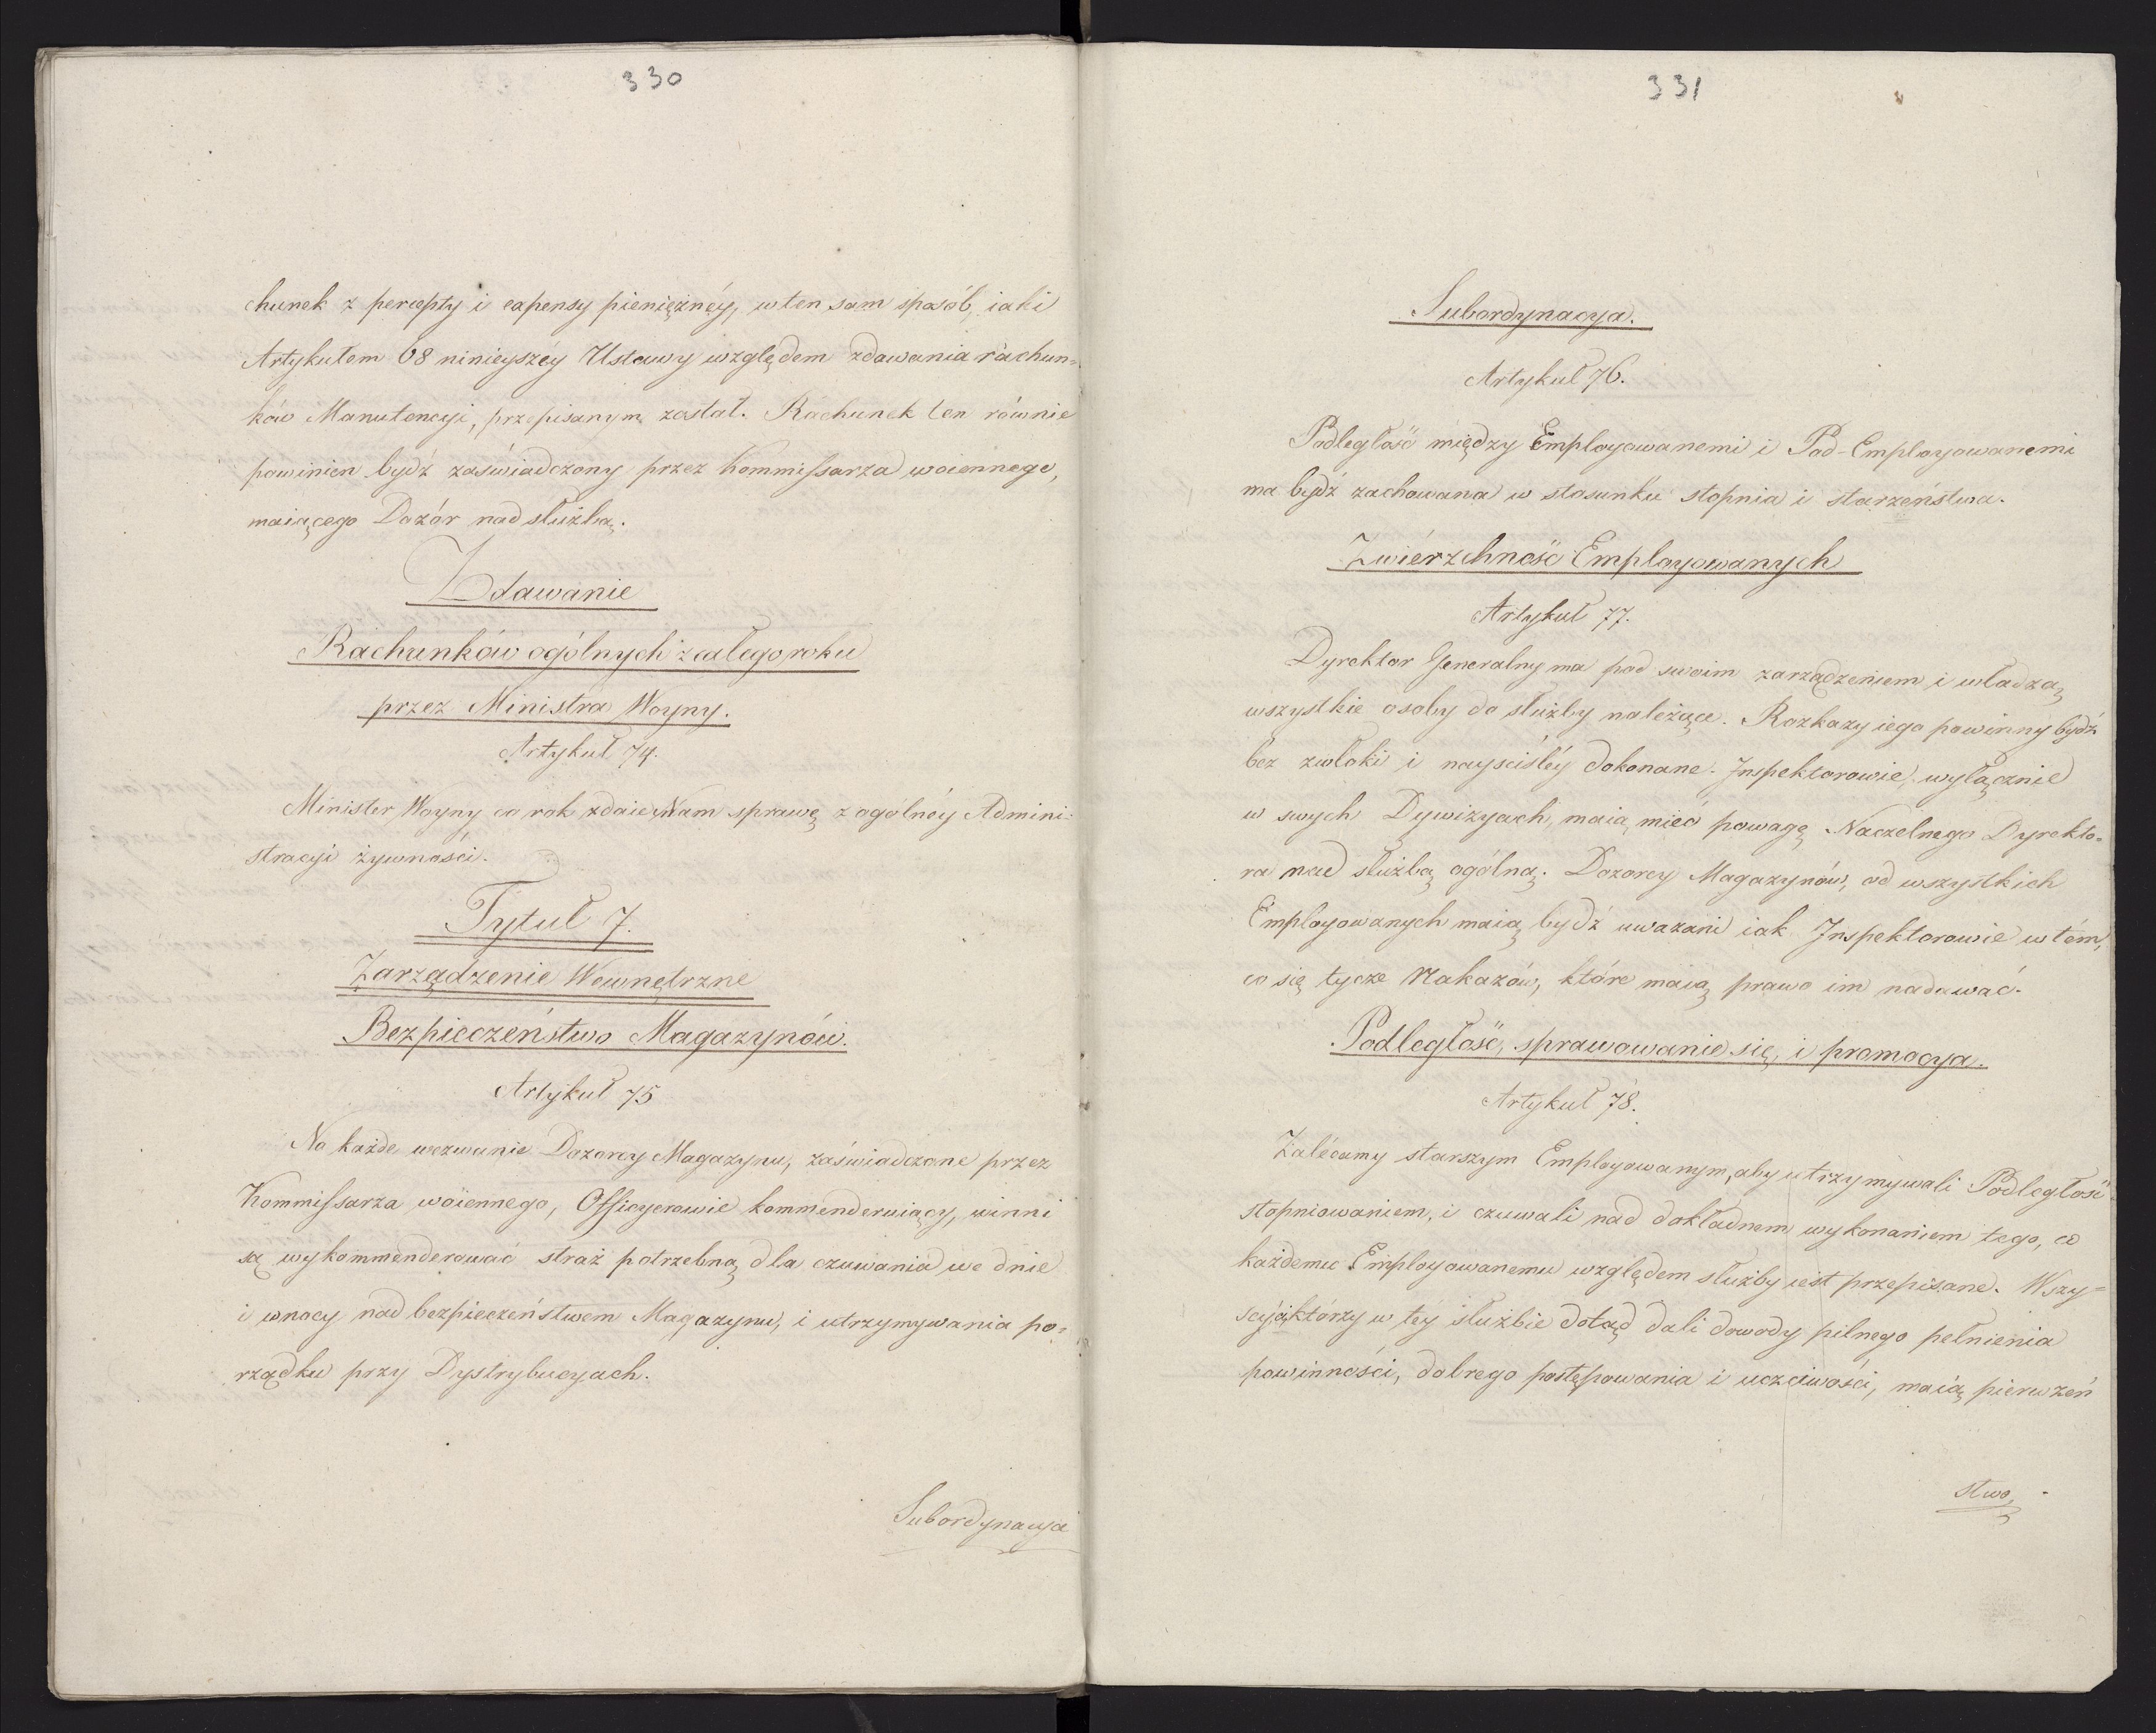 330
chunek z percepty i expensy pieniężnéy, w ten sam sposób, iaki
Artykułem 68 ninieyszéy Ustawy względem zdawania rachun=
ków Manutencyi, przepisanym został. Rachunek ten równie
powinien bydź zaświadczony przez Kommissarza woiennego,
maiącego Dozór nad służbą.
Zdawanie
Rachunków ogólnych z całego roku
przez Ministra Woyny.
Artykuł 74.
Minister Woyny co rok zdaie Nam sprawę z ogólnéy Admini=
stracyi żywności.
Tytuł 7.
Zarządzenie Wewnętrzne
Bezpieczeństwo Magazynów.
Artykuł 75
Na każde wezwanie Dozorcy Magazynu, zaświadczone przez
Kommissarza woiennego, Officyerowie kommenderuiący, winni
są wykommenderować straż potrzebną dla czuwania we dnie
i wnocy nad bezpieczeństwem Magazynu, i utrzymywania po=
rządku przy Dystrybucyach.
Subordynacya
331
Subordynacya.
Artykuł 76.
Podległość między Employowanemi i Pod-Employowanemi
ma bydź zachowana w stosunku stopnia i starzeństwa.
Zwiérzchność Employowanych
Artykuł 77.
Dyrektor Generalny ma pod swoim zarządzeniem i władzą
wszystkie osoby do służby należące. Rozkazy iego powinny bydź
bez zwłoki i nayściśléy dokonane. Inspektorowie, wyłącznie
w swych Dywizyach, maią mieć powagę Naczelnego Dyrekto=
ra nad służbą ogólną. Dozorcy Magazynów, od wszystkich
Employowanych maią bydź uwazani iak Inspektorowie w tém,
co się tycze Nakazów, które maią prawo im nadawać.
Podległość, sprawowanie się, i promocya.
Artykuł 78.
Zalécamy starszym Employowanym, aby utrzymywali Podległość
stopniowaniem, i czuwali nad dokładnem wykonaniem tego, co
każdemu Employowanemu względem służby iest przepisane. Wszy=
scy którzy w téy służbie dotąd dali dowody pilnego pełnienia
powinności, dobrego postępowania i uczciwości, maią pierwzeń
stwo